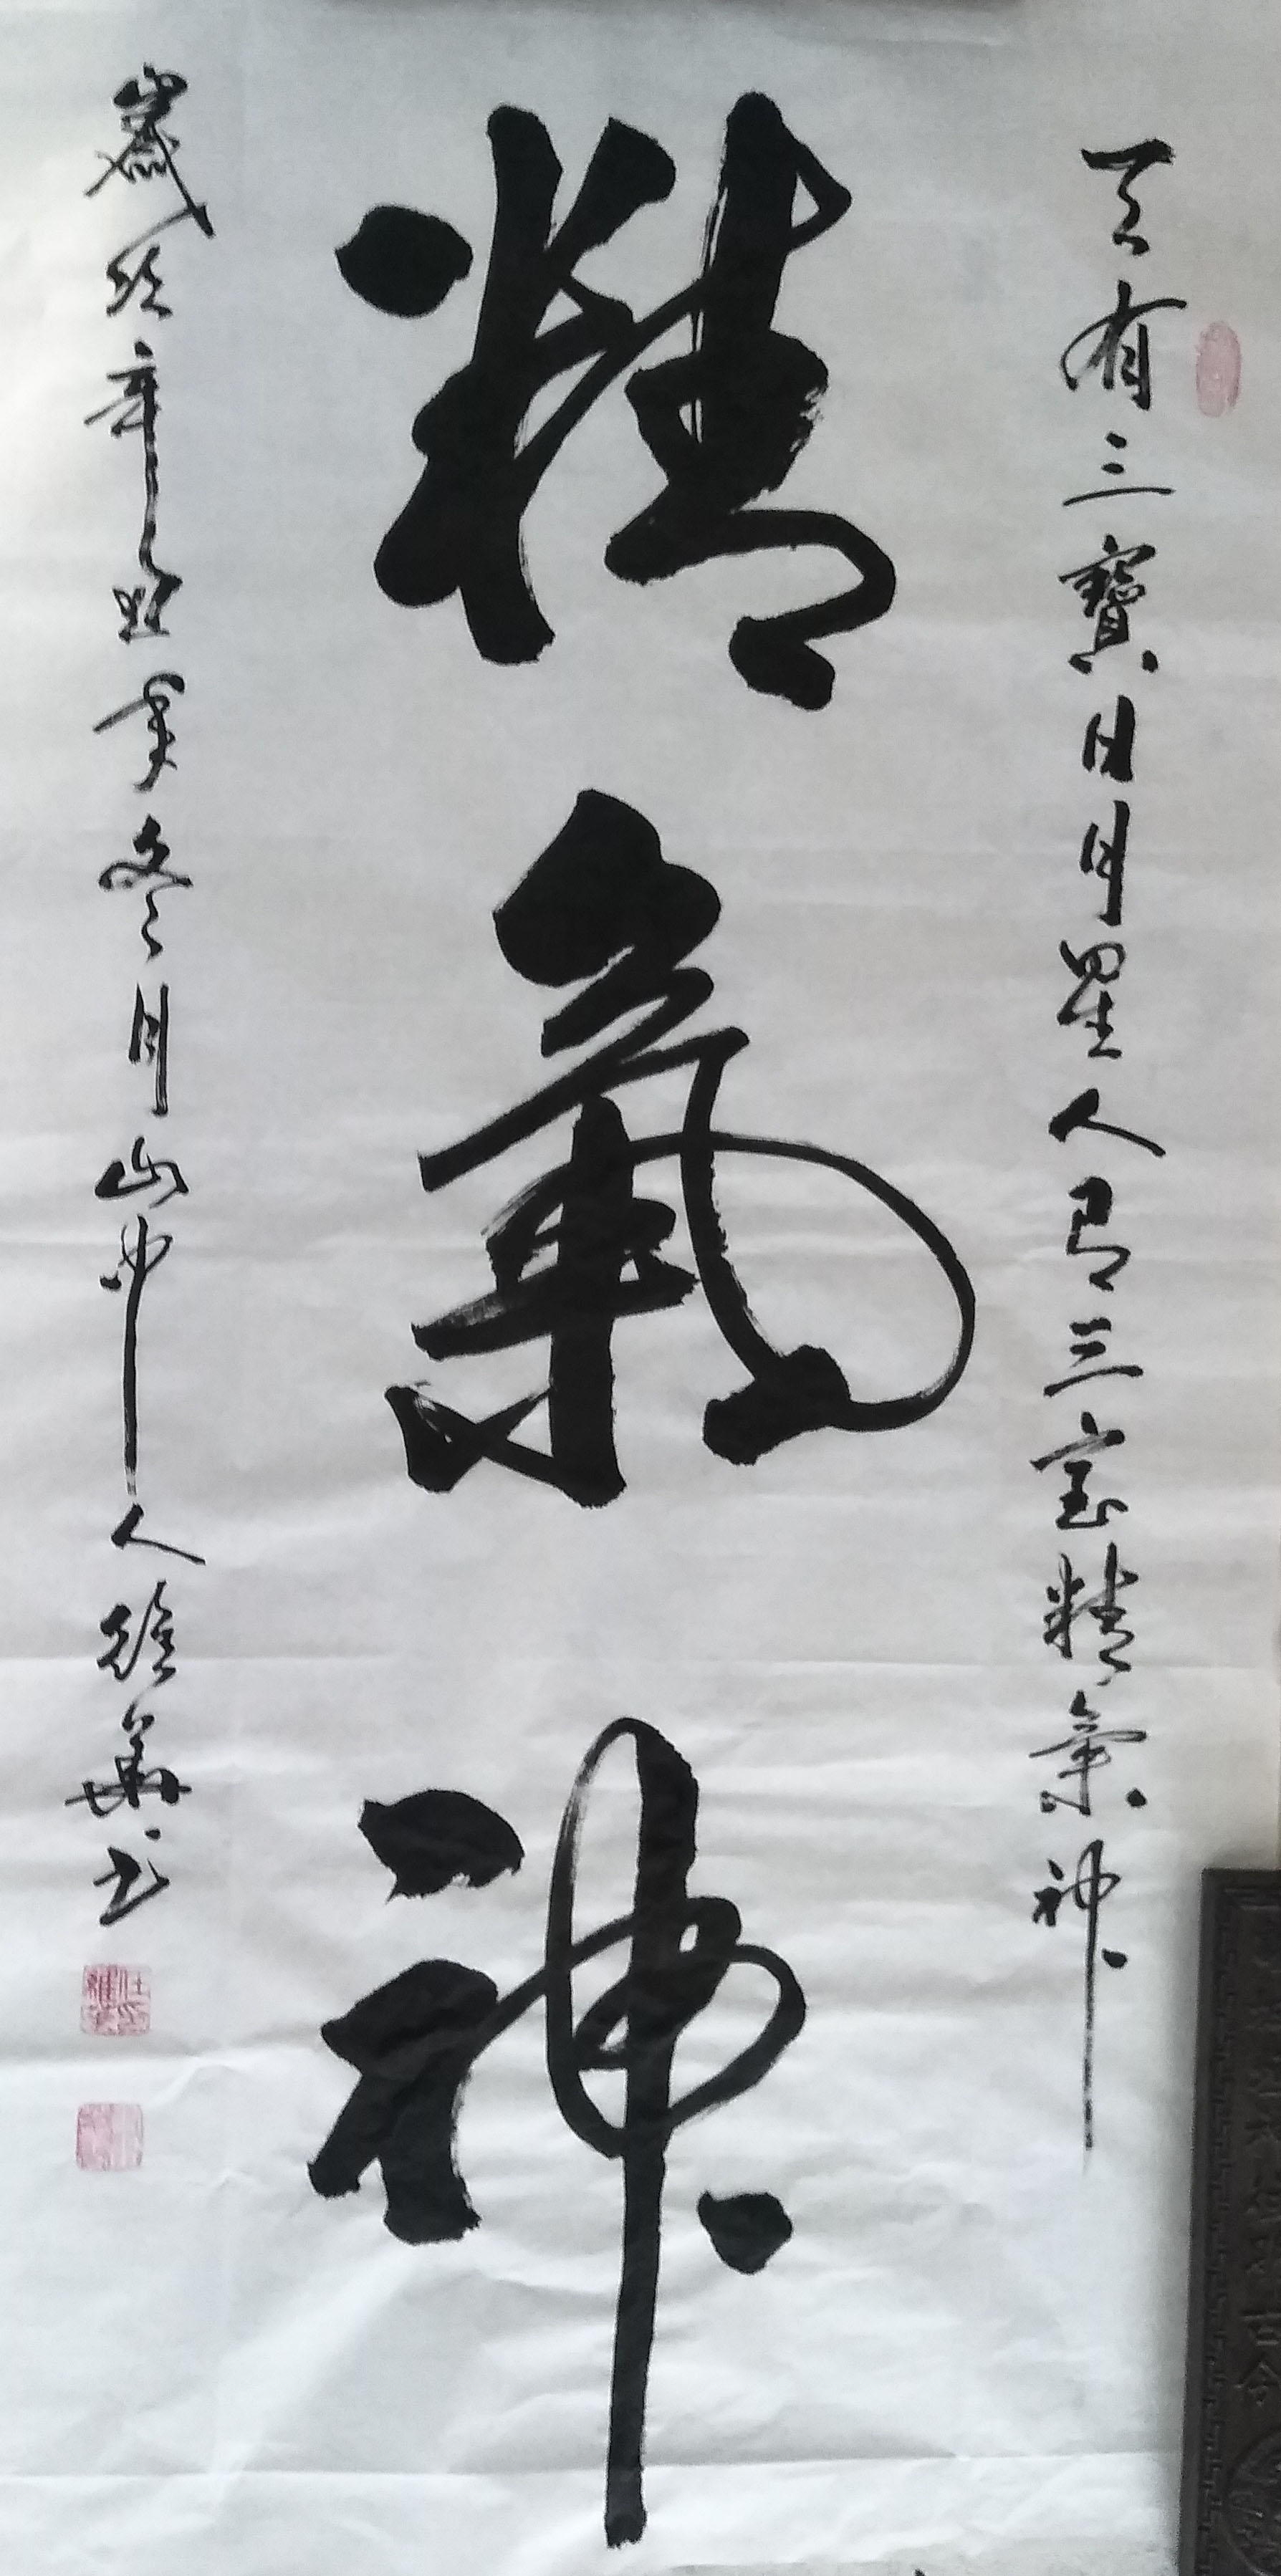 天有三寶日月星人有三宝精氣神
精氣神
歲於辛丑年冬月山中人維華书